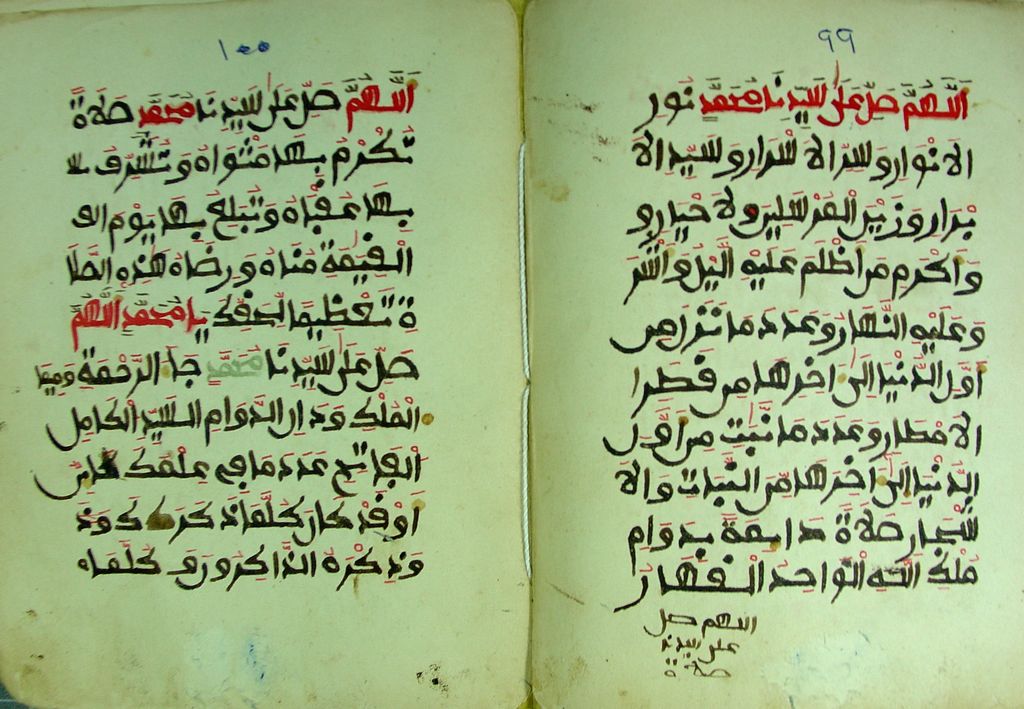 ٩٩
اللَّهُمَّ صَلِّ عَلَى سَيِّدِنَا مُحَمَّدٍ نُورِ
الانْوَارِ وَسِرِّ الاسْرَارِ وَسَيِّدِ الا
بْرَارِ وَزَيْنِ الْمُرْسَلِينَ ولاخْيَارِ و
وَاكْرَمِ مَنَ اظْلَمَ عَلَيْهِ الَّيْلُ وَاشْرَ
وَعَلَيْهِ النَّهَارُ وَعَدَدَ مَا نَزَلَ مِن
اوَّلِ الدُّنْيَا اِلَى اخِرِهَا مِن قَطْرِ
الامْطَارِ وَعَدَدَ مَا نَبَتَ مِنَ اوَّلِ
الدُّنْيَا اِلَى اخِرِهَا مِنَ النَّبَاتِ وَالا
شْجَارِ صَلَاةً دَايِمَةً بِدَوَامِ
مُلْكِ اللَّهِ الْوَاحِدِ الْقَهَّارِ
اللهم صل
على سيدنا
صلاة
١٠٠
اللَّهُمَّ صَلِّ عَلَى سَيِّدِنَا مُحَمَّدٍ صَلَاةً
تُكْرِمُ بِهَا مَثْوَاهُ وَتُشَرِّفُ
بِهَا عُقْبَاهُ وَتُبَلِّغُ بِهَا يَوْمَ الق
الْقِيَمَةِ مُنَاهُ وَرِضَاهُ هَذِهِ الصَّلَا
ةُ تَعْظِيمًا لِحَقِّكَ يَا مُحَمَّدُ اللَّهُمَّ
صَلِّ عَلَى سَيِّدِنَا مُحَمَّدٍ حَا الرَّحْمَةِ وَمِيمَا
الْمُلْكِ وَدَالِ الدَّوَامِ السَّيِّدِ الْكَامِلِ
الْفَاتِحِ عَدَدَ مَا فِي عِلْمِكَ كَاين
اوْ قَدْ كَانَ كُلَّمَا ذَكَرَكَ وَذَ
وَذَكَرَهُ الذَّاكِرُونَ وَ كُلَّمَا